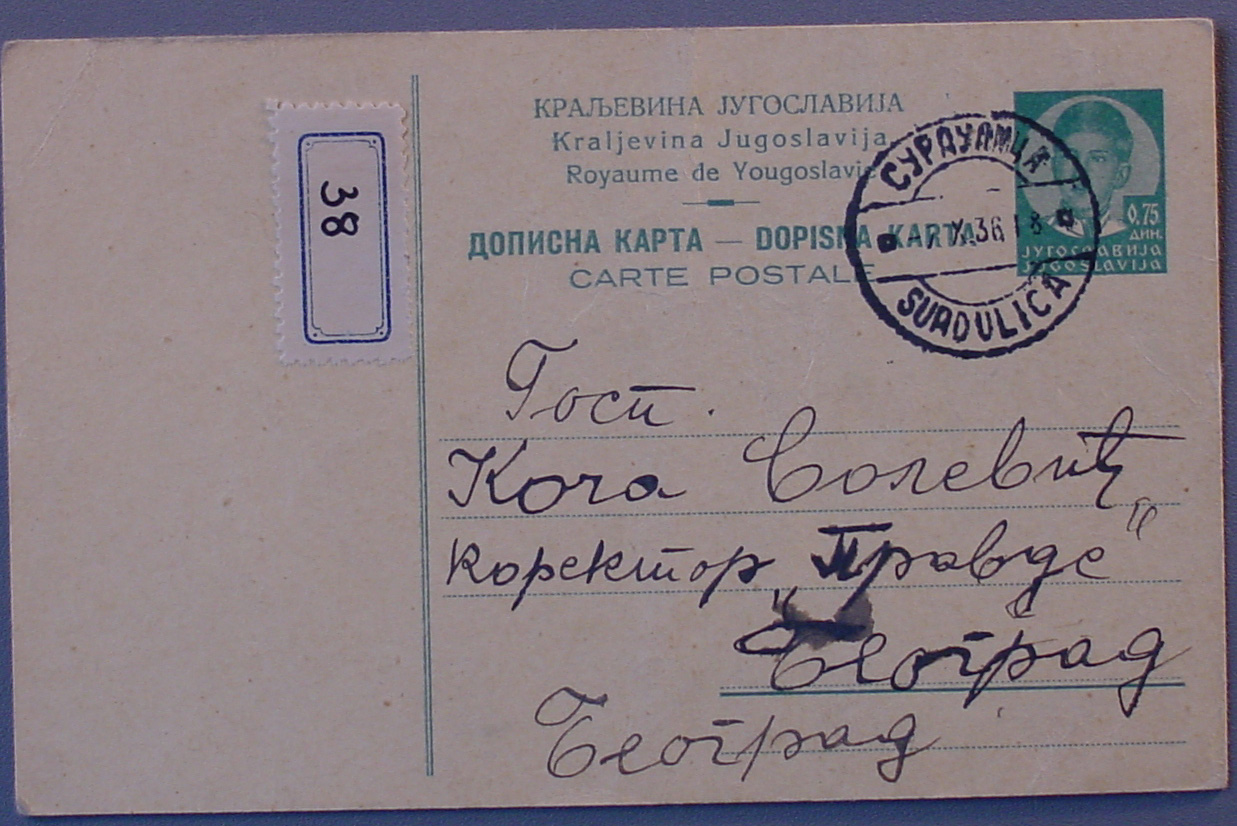 38
КРАЉЕВИНА ЈУГОСЛАВИЈА
Kraljevina Jugoslavija
Royaume de Yougoslavie
ДОПИСНА КАРТА — DOPISNA KARTA
CARTE POSTALE
СУРДУЛИЦА
X.36 18
SURDULICA
0,75
ДИН.
ЈУГОСЛАВИЈА
JUGOSLAVIJA
Госп.
Коча Солевић
коректор „Правде“
Београд
Београд